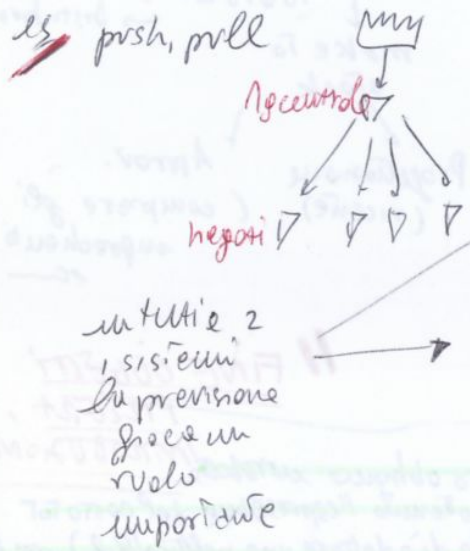 es push, pull
Mg centrale
negozi
in tutti e 2
i sistemi
la previsione
gioca un
ruolo
importante